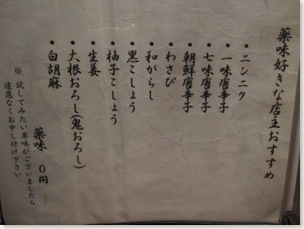 薬味好きな店主おすすめ
• ニンニク
• 一味唐辛子
• 七味唐辛子
• 朝鮮唐辛子
• わさび
• 和がらし
• 黒こしょう
• 柚子こしょう
• 生姜
• 大根おろし(鬼おろし)
• 白胡麻
薬味 0円
※ 試してみたい薬味がございましたら
遠慮なくお申し付け下さい